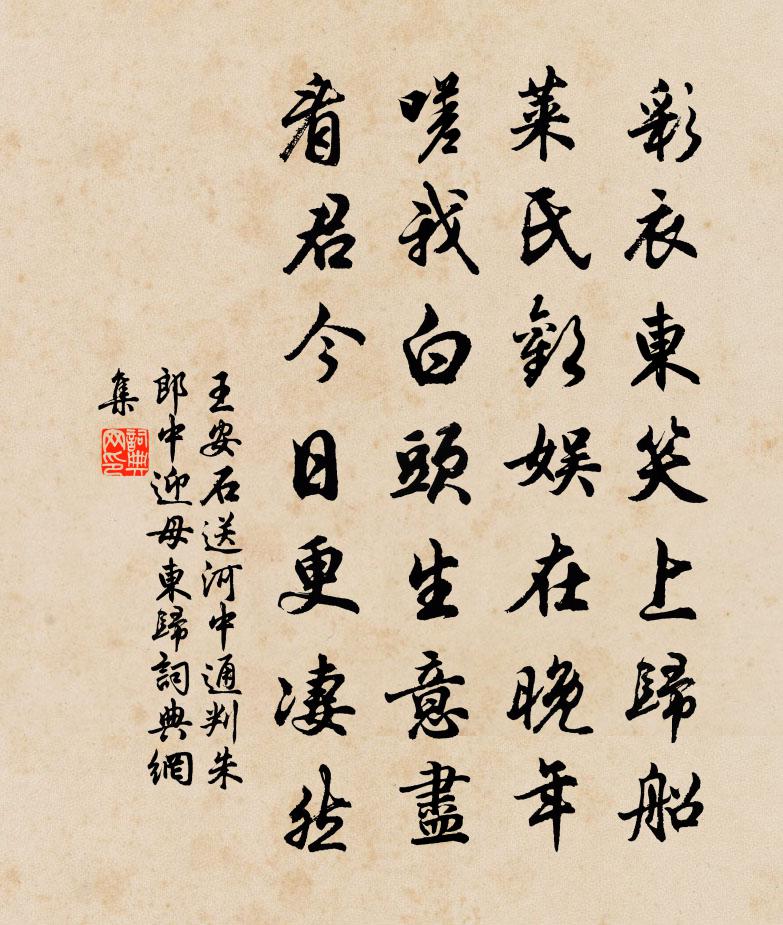 彩衣東笑上歸船
萊氏歡娛在晚年
嗟我白頭生意盡
看君今日更凄然
王安石送河中通判朱
郎中迎母東歸詞典網
集
詞典
网印